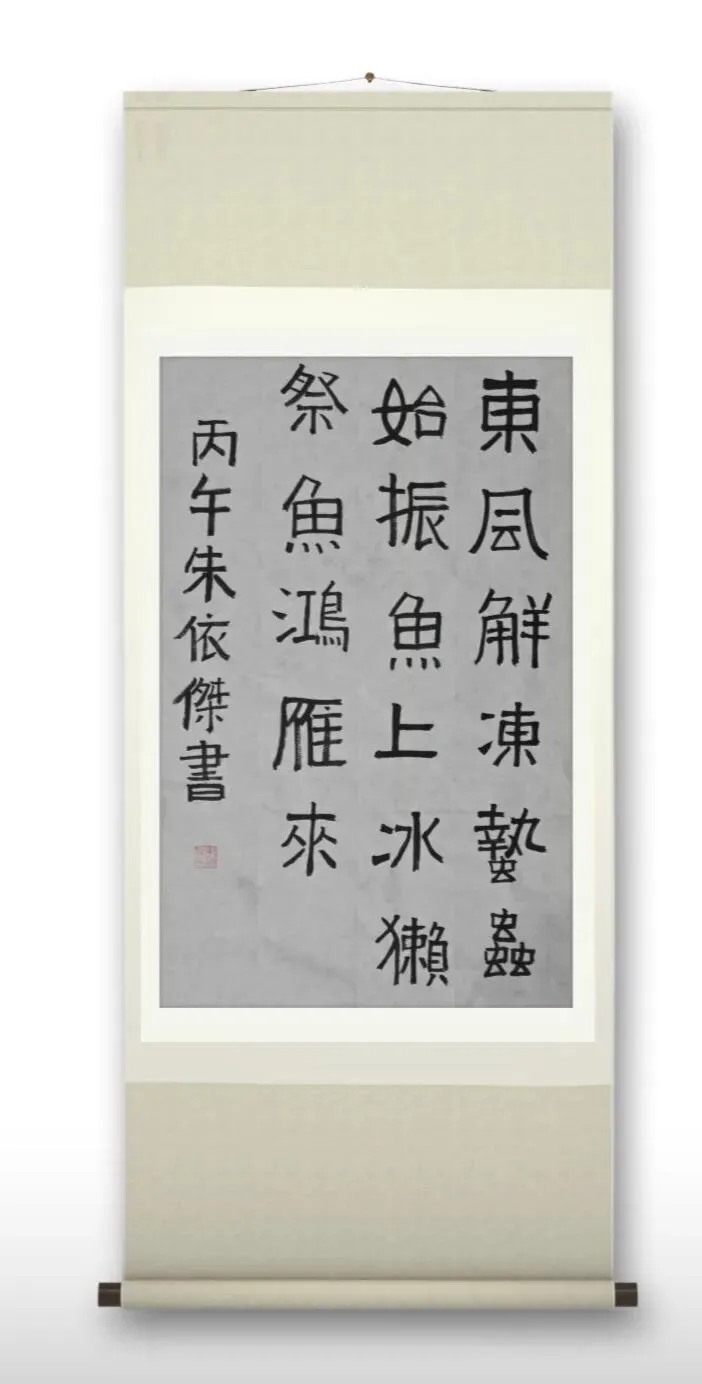 東風解凍蟄蟲
始振魚上冰獺
祭魚鴻雁來
丙午朱依傑書